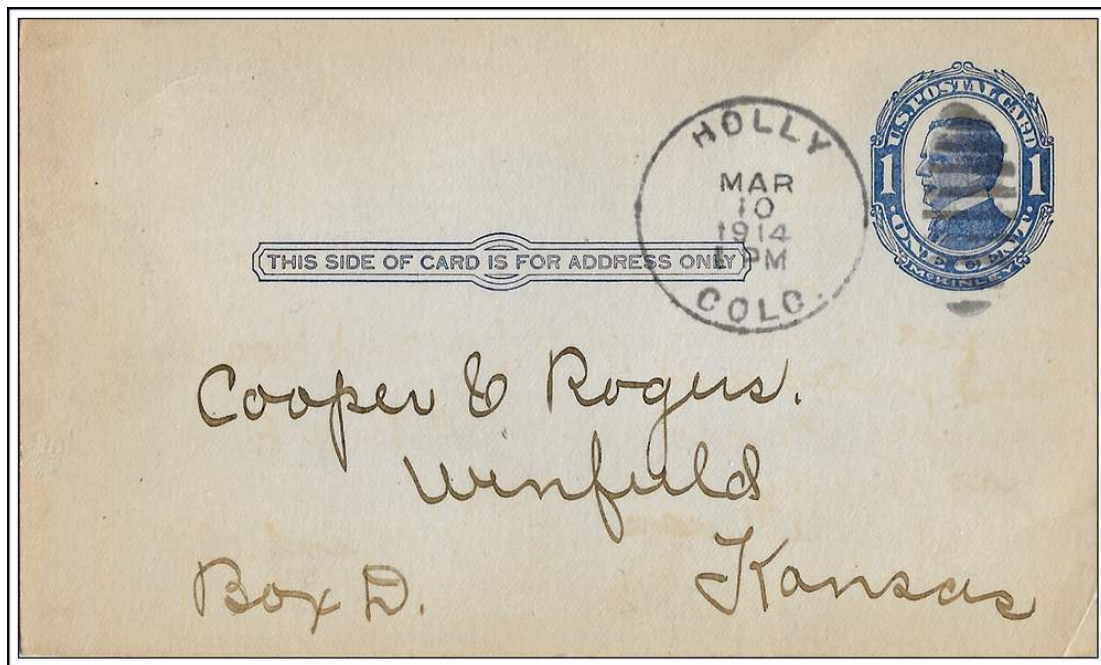 U.S. POSTAL CARD
1 1
ONE CENT.
McKINLEY
HOLLY
MAR
10
1914
PM
COLO.
THIS SIDE OF CARD IS FOR ADDRESS ONLY
Cooper & Rogers.
Winfield
Box D. Kansas